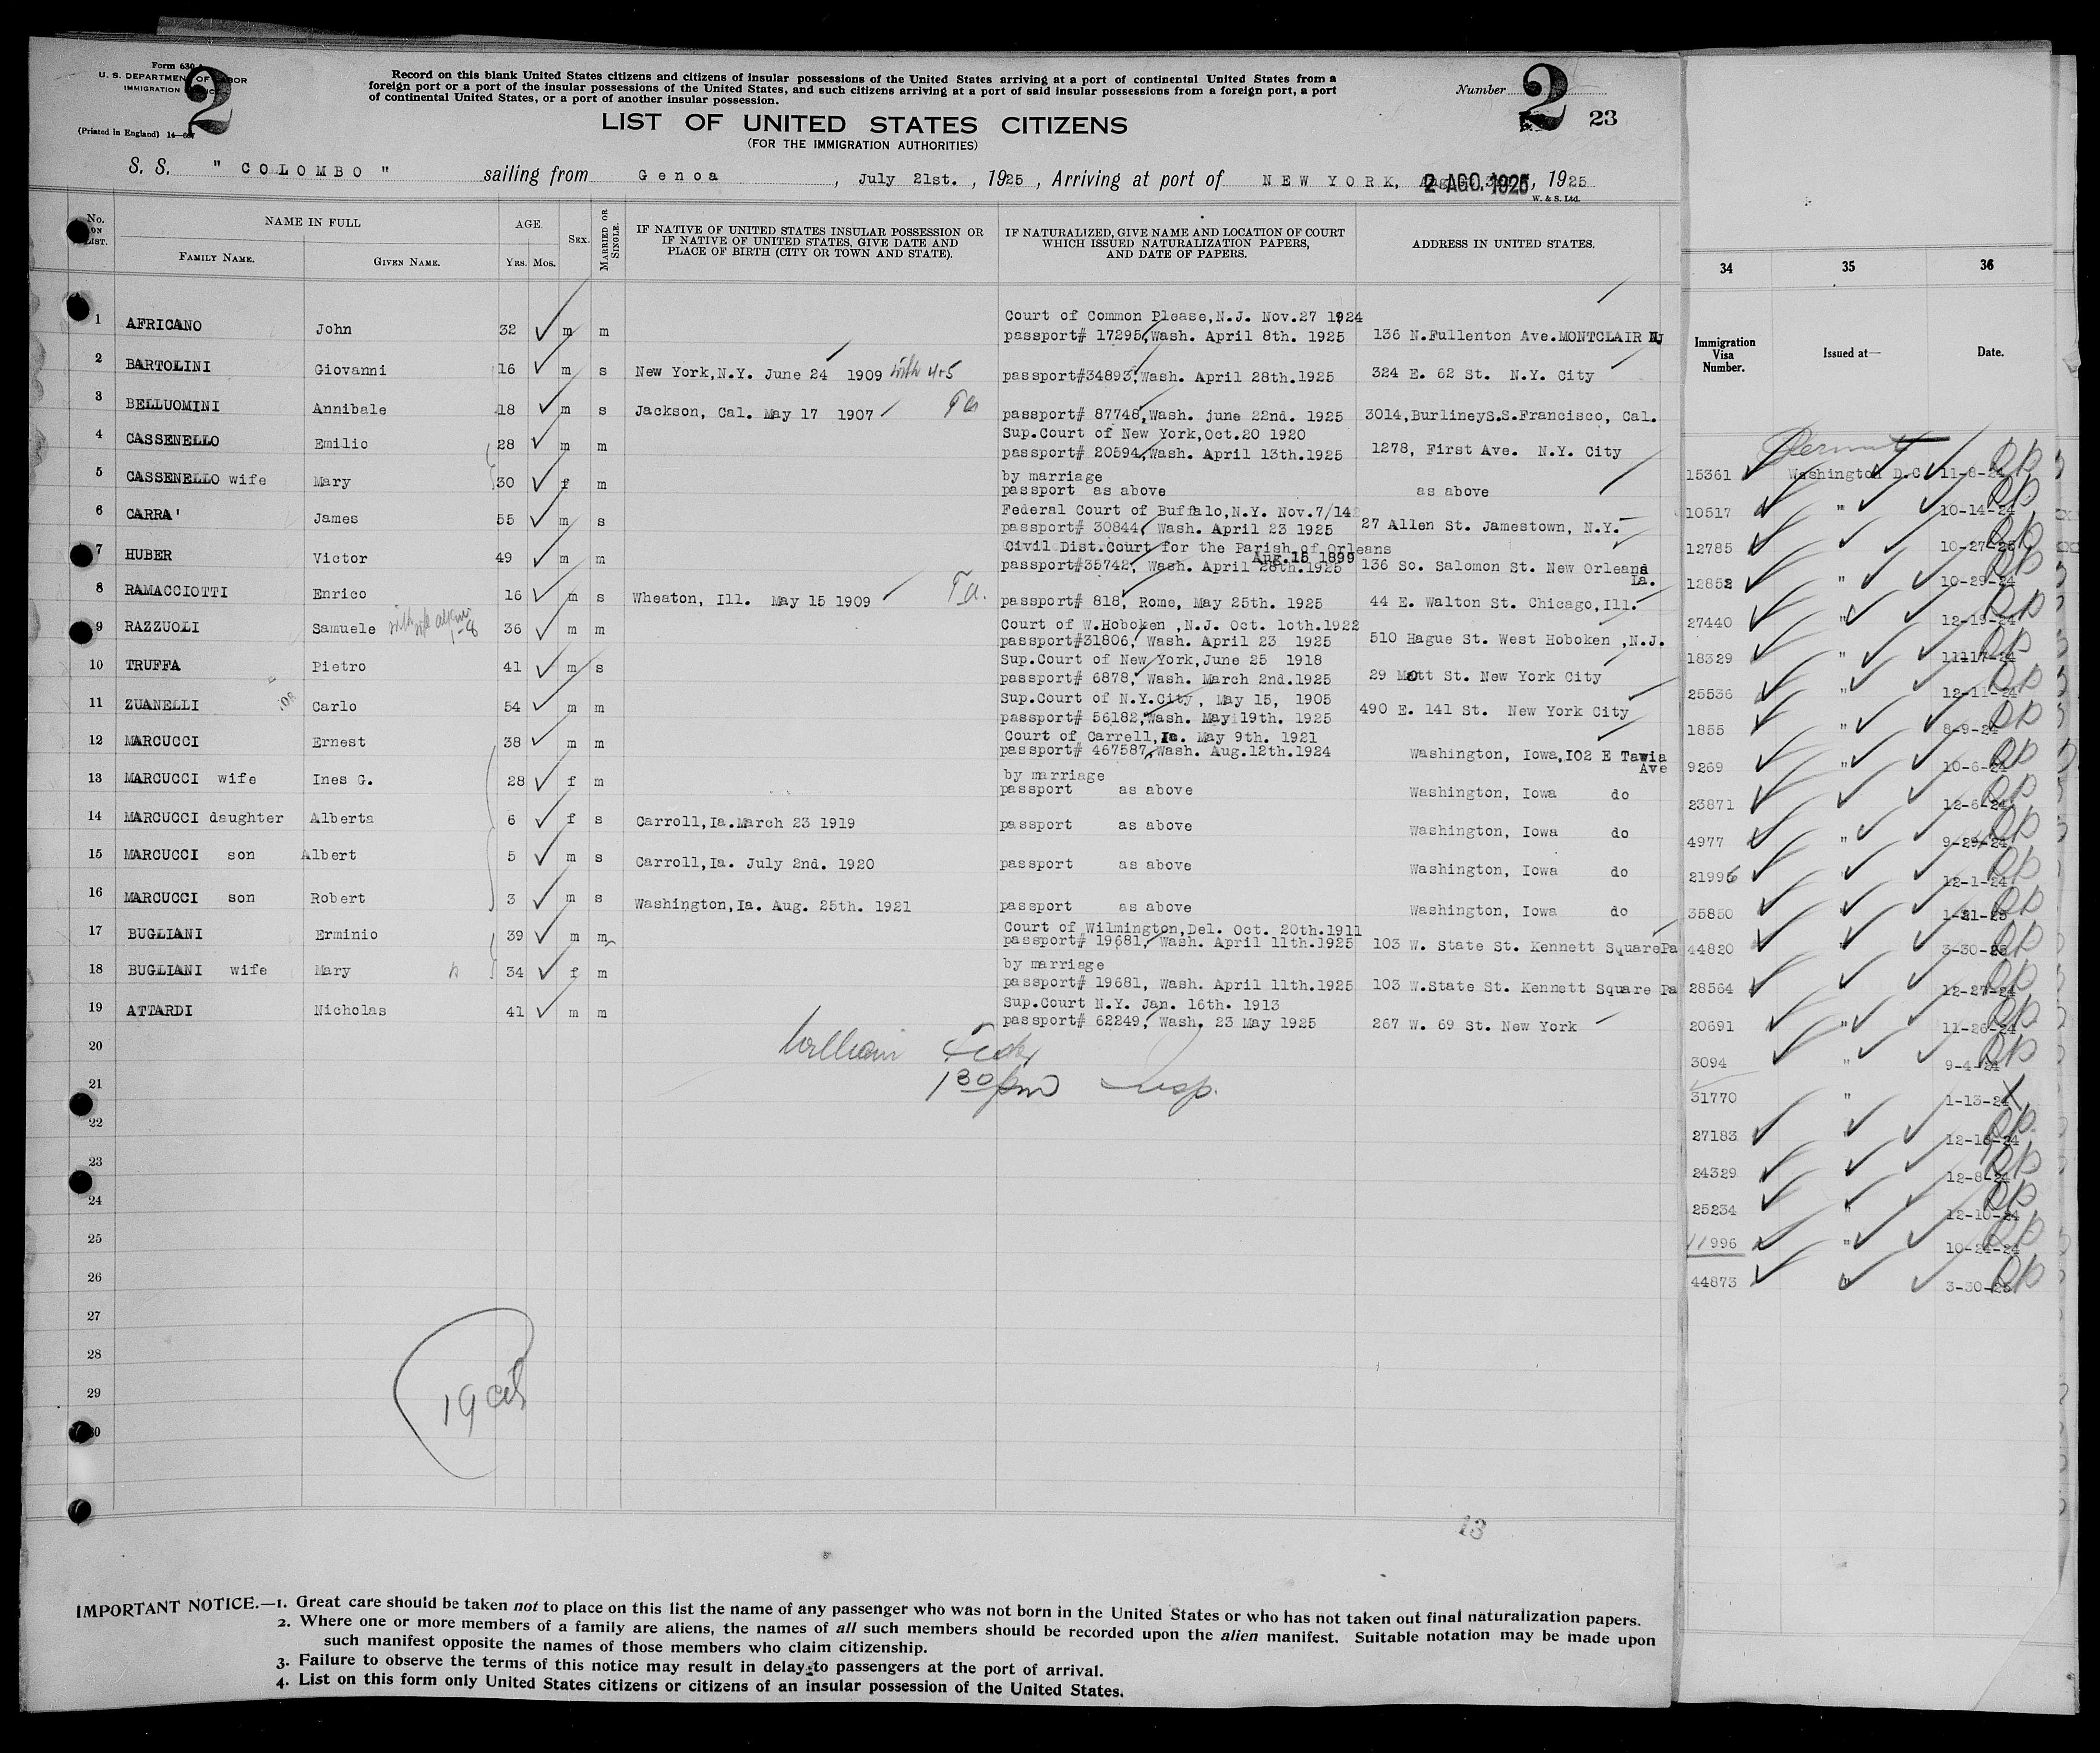 Form 630
U. S. DEPARTMENT OF LABOR
IMMIGRATION
2
(Printed in England)
Record on this blank United States citizens and citizens of insular possessions of the United States arriving at a port of continental United States from a
foreign port or a port of the insular possessions of the United States, and such citizens arriving at a port of said insular possessions from a foreign port, a port
of continental United States, or a port of another insular possession.
Number 2 23
LIST OF UNITED STATES CITIZENS
(FOR THE IMMIGRATION AUTHORITIES)
S. S. " COLOMBO " sailing from Genoa , July 21st. , 1925 , Arriving at port of NEW YORK, 2 AGO. 1925 , 1925
W. & S. Ltd.
No. ON LIST. NAME IN FULL FAMILY NAME. GIVEN NAME. AGE YRS. MOS. SEX. MARRIED OR SINGLE.
IF NATIVE OF UNITED STATES INSULAR POSSESSION OR IF NATIVE OF UNITED STATES, GIVE DATE AND PLACE OF BIRTH (CITY OR TOWN AND STATE).
IF NATURALIZED, GIVE NAME AND LOCATION OF COURT WHICH ISSUED NATURALIZATION PAPERS, AND DATE OF PAPERS.
ADDRESS IN UNITED STATES.
1 AFRICANO John 32 m m Court of Common Please,N.J. Nov.27 1924
passport# 17295,Wash. April 8th. 1925 136 N.Fullenton Ave.MONTCLAIR NJ
2 BARTOLINI Giovanni 16 m s New York,N.Y. June 24 1909 with 4+5 passport#34893,Wash. April 28th.1925 324 E. 62 St. N.Y. City
3 BELLUOMINI Annibale 18 m s Jackson, Cal. May 17 1907 passport# 87748,Wash. june 22nd. 1925 3014,BurlineyS.S.Francisco, Cal.
4 CASSENELLO Emilio 28 m m Sup.Court of New York,Oct.20 1920
passport# 20594,Wash. April 13th.1925 1278, First Ave. N.Y. City
5 CASSENELLO wife Mary 30 f m by marriage
passport as above as above
6 CARRA' James 55 m s Federal Court of Buffalo,N.Y. Nov.7/14
passport# 30844, Wash. April 23 1925 27 Allen St. Jamestown, N.Y.
7 HUBER Victor 49 m m Civil Dist.Court for the Parish of Orleans
Aug.15 1899
passport#35742, Wash. April 28th.1925 136 So. Salomon St. New Orleans
La.
8 RAMACCIOTTI Enrico 16 m s Wheaton, Ill. May 15 1909 passport# 818, Rome, May 25th. 1925 44 E. Walton St. Chicago,Ill.
9 RAZZUOLI Samuele 36 m m Court of W.Hoboken ,N.J. Oct. 1oth.1922
passport#31806, Wash. April 23 1925 510 Hague St. West Hoboken ,N.J.
10 TRUFFA Pietro 41 m s Sup.Court of New York,June 25 1918
passport# 6878, Wash. March 2nd.1925 29 Mott St. New York City
11 ZUANELLI Carlo 54 m m Sup.Court of N.Y.City, May 15, 1905
passport# 56182,Wash. May 19th. 1925 490 E. 141 St. New York City
12 MARCUCCI Ernest 38 m m Court of Carrell,Ia. May 9th. 1921
passport# 467587,Wash. Aug.12th.1924 Washington, Iowa,IO2 E Tawia
Ave
13 MARCUCCI wife Ines G. 28 f m by marriage
passport as above Washington, Iowa do
14 MARCUCCI daughter Alberta 6 f s Carroll,Ia.March 23 1919 passport as above Washington, Iowa do
15 MARCUCCI son Albert 5 m s Carroll,Ia. July 2nd. 1920 passport as above Washington, Iowa do
16 MARCUCCI son Robert 3 m s Washington,Ia. Aug. 25th. 1921 passport as above Washington, Iowa do
17 BUGLIANI Erminio 39 m m Court of Wilmington,Del. Oct. 20th.1911
passport# 19681, Wash. April 11th.1925 103 W. State St. Kennett SquarePa
18 BUGLIANI wife Mary 34 f m by marriage
passport# 19681, Wash. April 11th.1925 103 W.State St. Kennett Square Pa
19 ATTARDI Nicholas 41 m m Sup.Court N.Y. Jan. 16th. 1913
passport# 62249, Wash. 23 May 1925 267 W. 69 St. New York
20
William
21
130pm Insp.
22
23
24
25
26
27
28
29
30
19 cit
13
IMPORTANT NOTICE.—1. Great care should be taken not to place on this list the name of any passenger who was not born in the United States or who has not taken out final naturalization papers.
2. Where one or more members of a family are aliens, the names of all such members should be recorded upon the alien manifest. Suitable notation may be made upon
such manifest opposite the names of those members who claim citizenship.
3. Failure to observe the terms of this notice may result in delay to passengers at the port of arrival.
4. List on this form only United States citizens or citizens of an insular possession of the United States.
34 35 36
Immigration Visa Number. Issued at— Date.
Permit
15361 Washington D.C. 11-8-24
10517 " 10-14-24
12785 10-27-25
12852 " 10-29-24
27440 " 12-19-24
18329 " 11117-24
25536 " 12-11-24
1855 " 8-9-24
9269 " 10-6-24
23871 12-6-24
4977 " 9-29-24
21996 " 12-1-24
35850 " 1-21-25
44820 " 3-30-25
28564 " 12-27-24
20691 " 11-26-24
3094 " 9-4-24
31770 " 1-13-24
27183 " 12-18-24
24329 " 12-8-24
25234 " 12-10-24
11996 " 10-24-24
44873 " 3-30-25